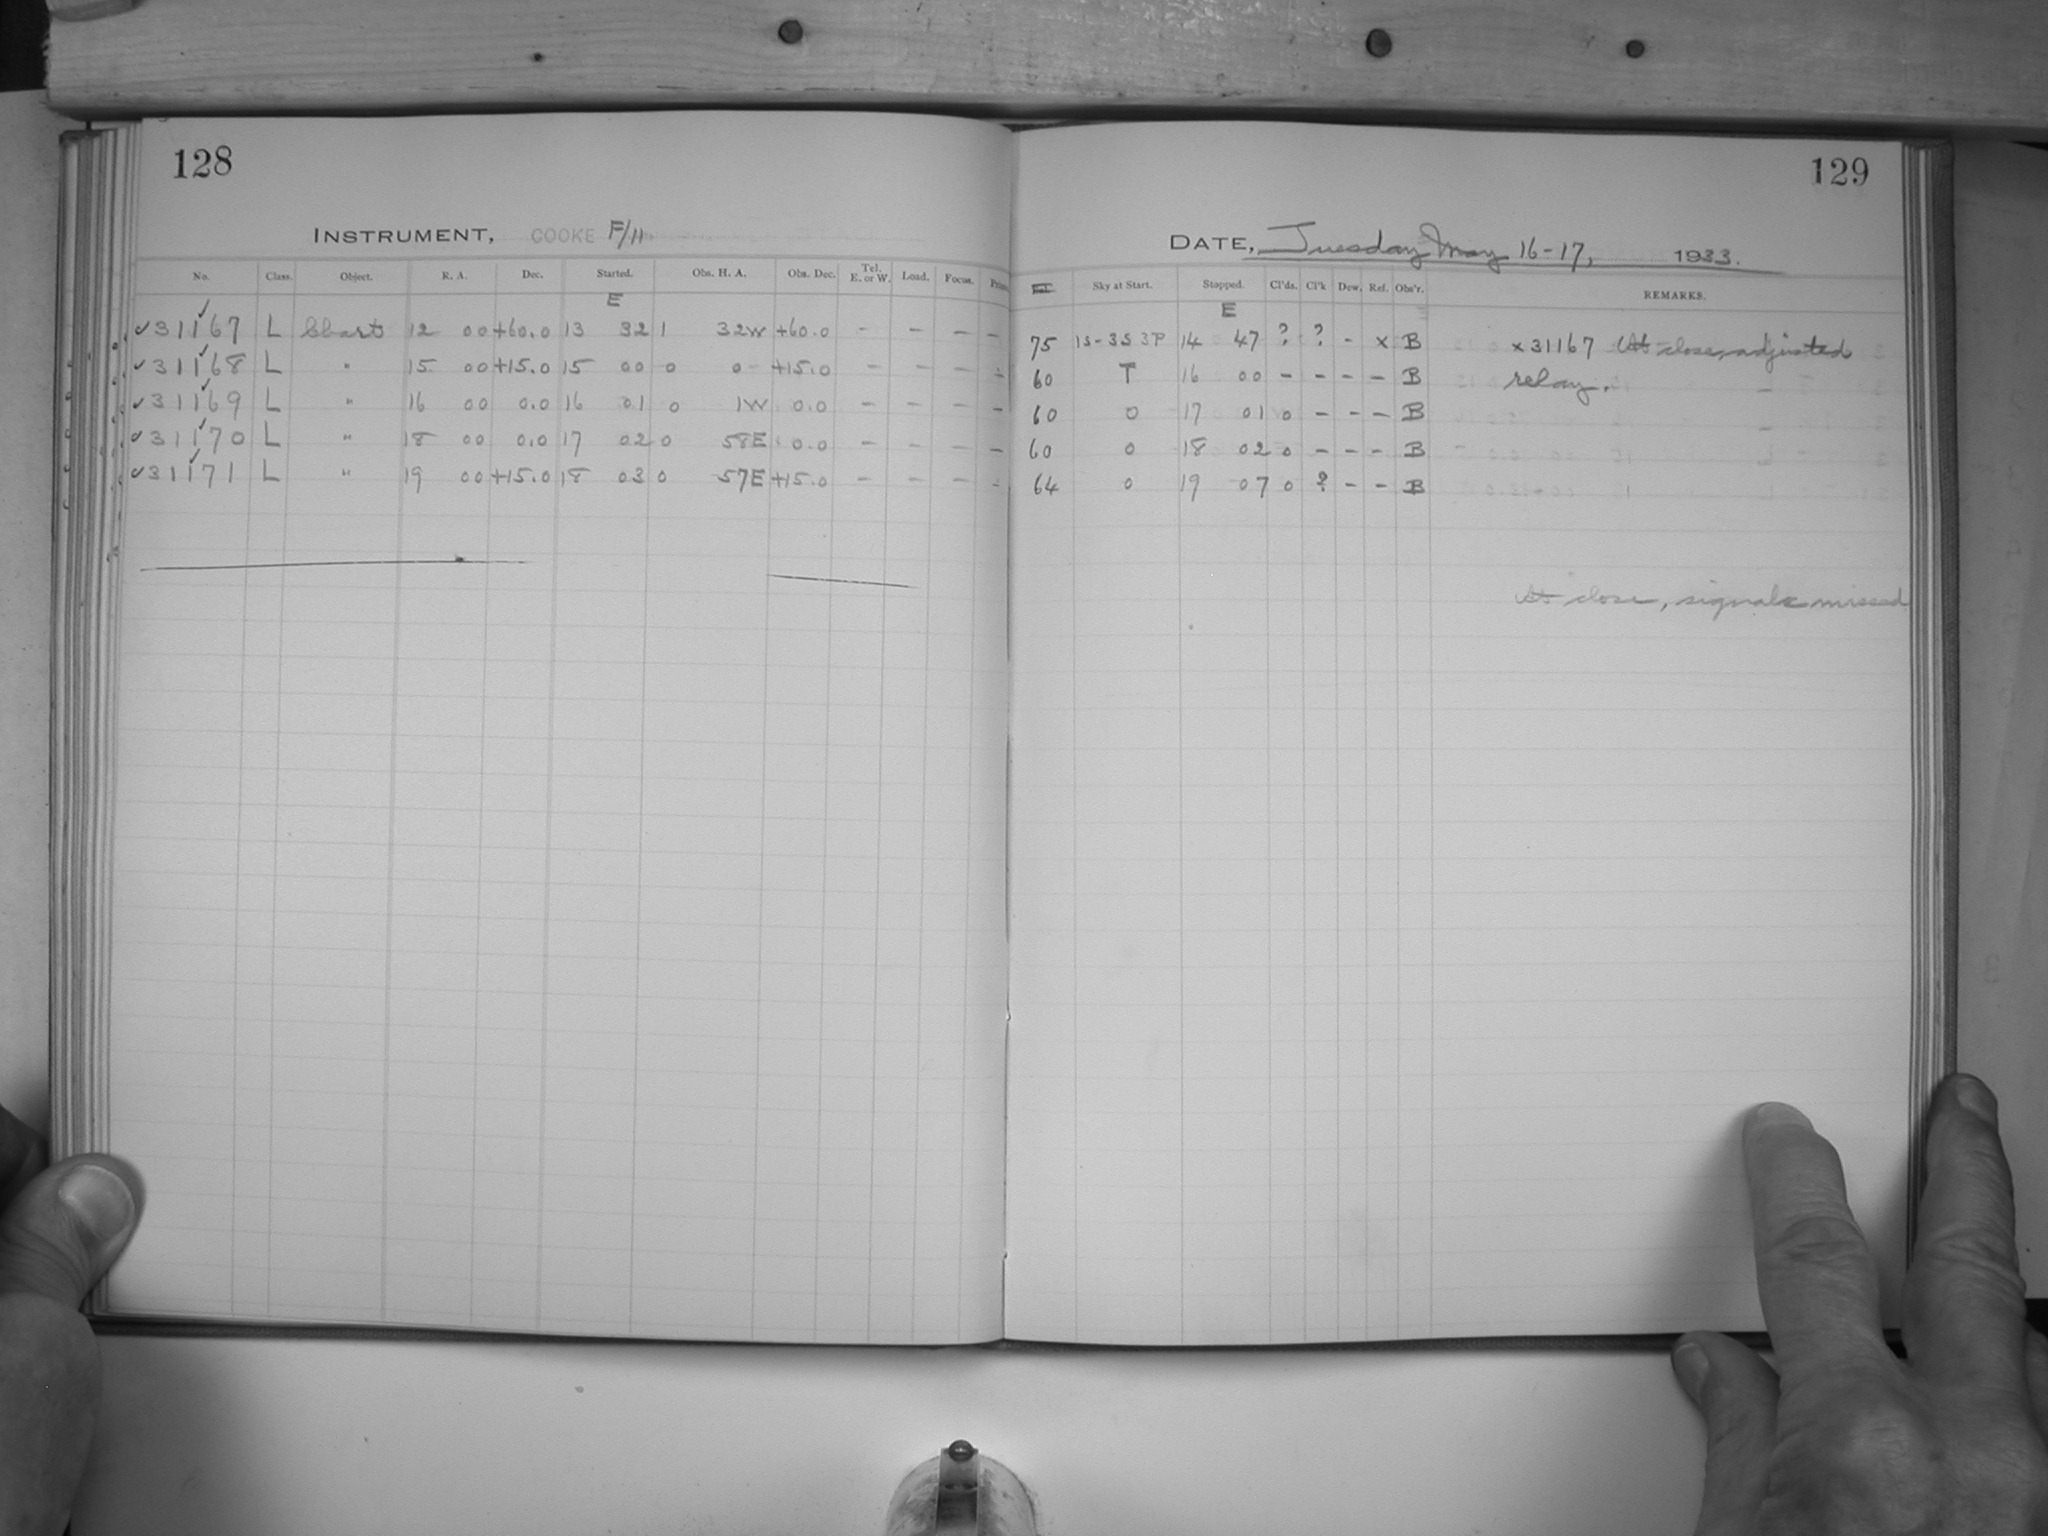 128
INSTRUMENT, COOKE F/11
No. Class. Object. R. A. Dec. Started. Obs. H. A. Obs. Dec. Tel. E. or W. Load. Focus.
E
✓31167 L Chart 12 00 +60.0 13 32 1 32W +60.0 - - - -
✓31168 L " 15 00 +15.0 15 00 0 0 - +15.0 - - - -
✓31169 L " 16 00 0.0 16 01 0 1W 0.0 - - - -
✓31170 L " 18 00 0.0 17 02 0 58E 0.0 - - - -
✓31171 L " 19 00 +15.0 18 03 0 57E +15.0 - - - -
129
DATE, Tuesday May 16-17, 1933.
Sky at Start. Stopped. Cl'ds. Cl'k Dew. Ref. Obs'r. REMARKS.
E
75 1S-3S 3P 14 47 ? ? - x B x31167 At close, adjusted
60 T 16 00 - - - - B relay.
60 0 17 01 0 - - - B
60 0 18 02 0 - - - B
64 0 19 07 0 ? - - B
At close, signals missed